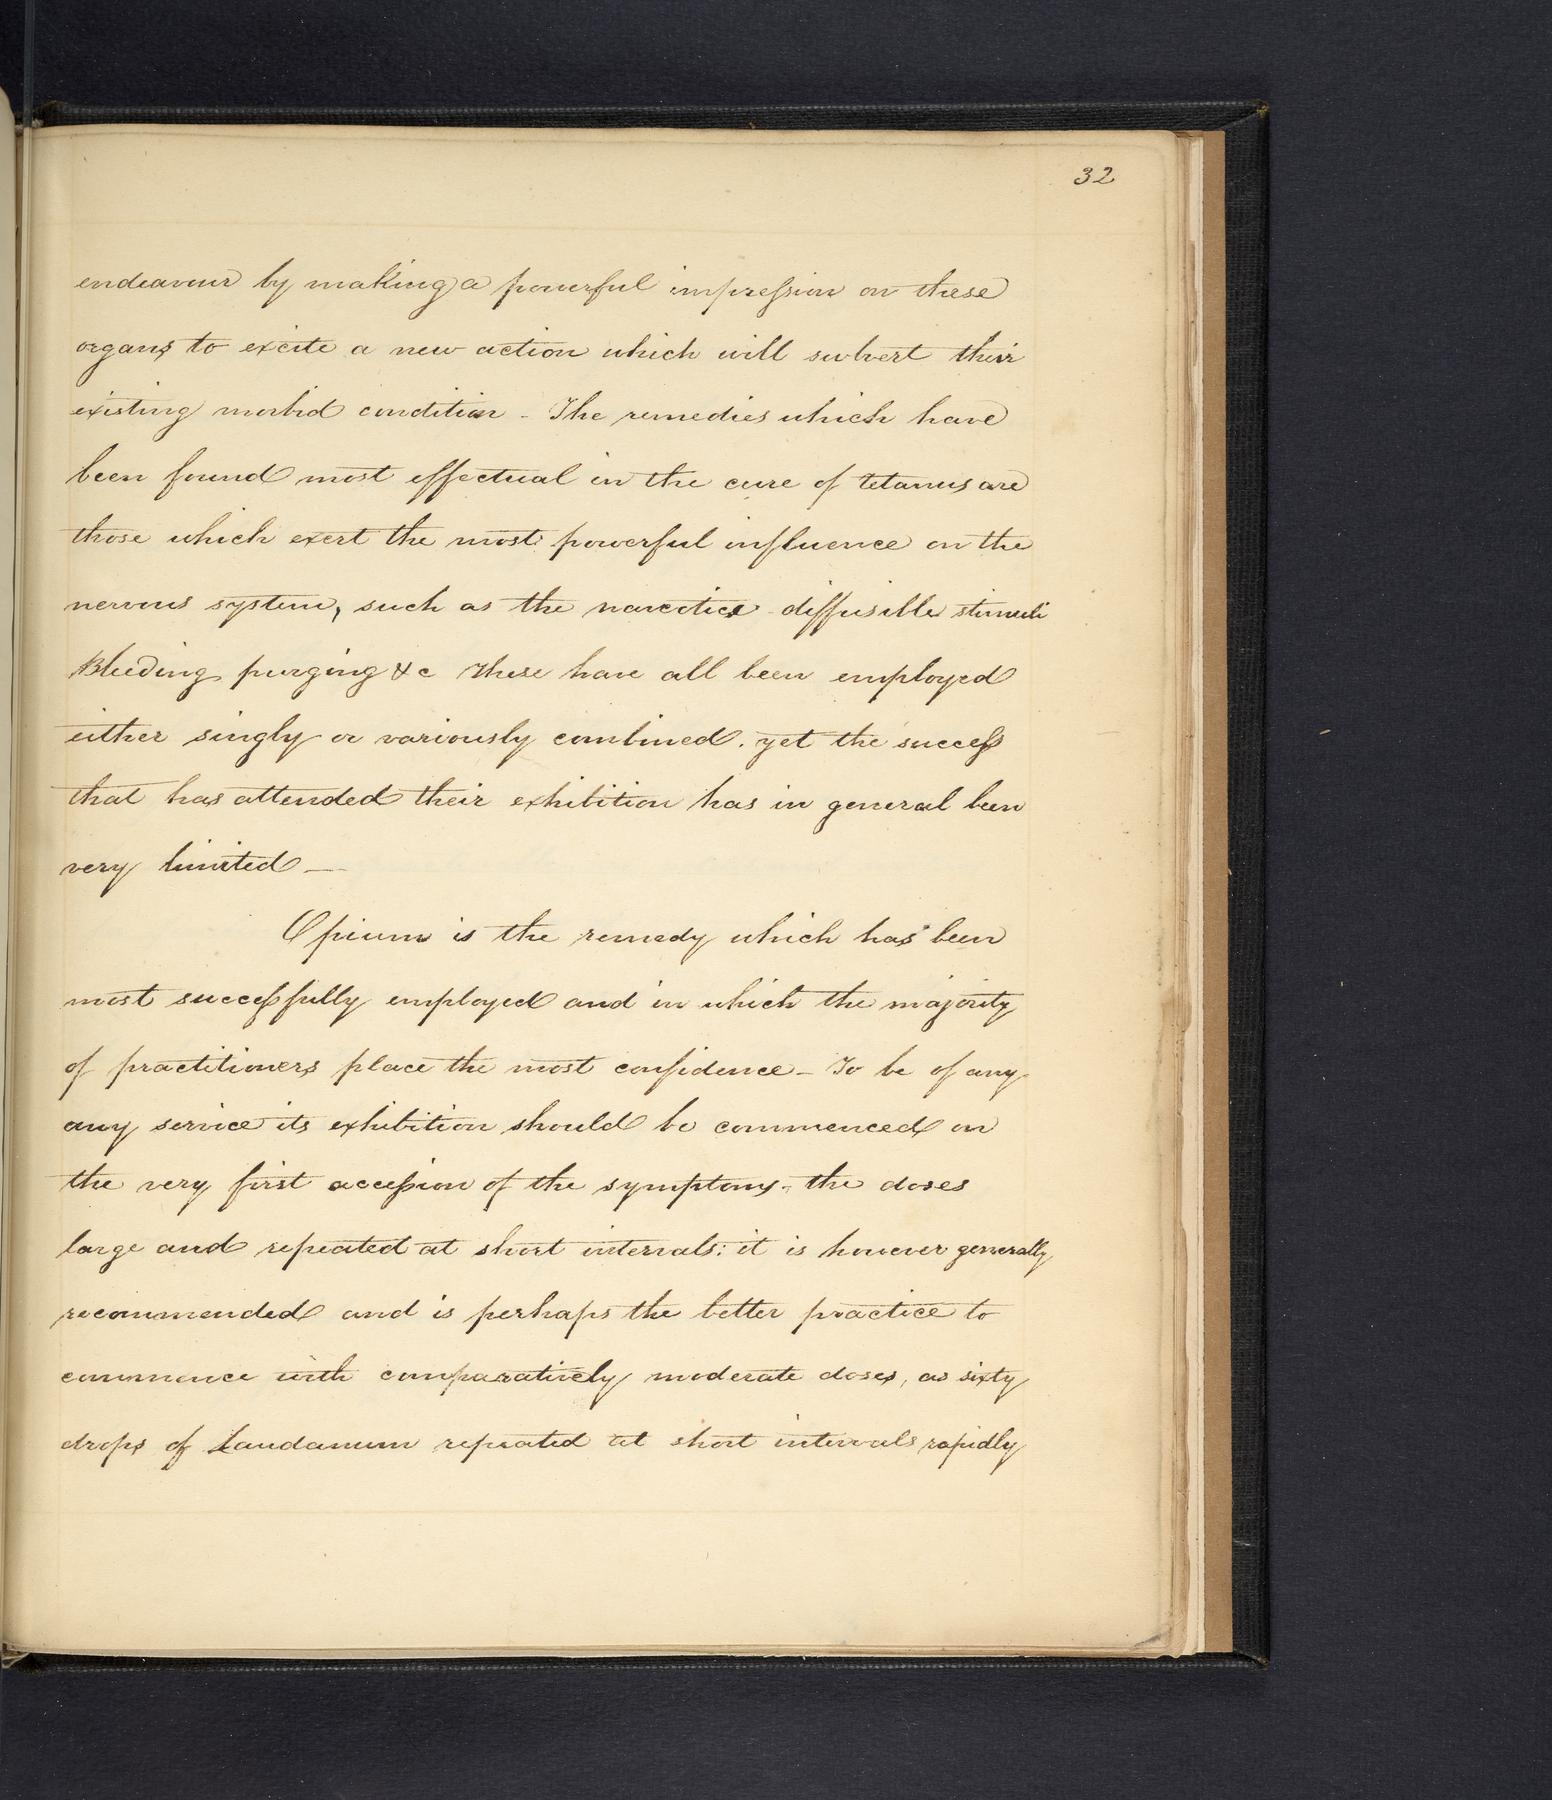 32
endeavour by making a powerful impression on these
organs to excite a new action which will subvert their
existing morbid condition - The remedies which have
been found most effectual in the cure of tetanus are
those which exert the most powerful influence on the
nervous system, such as the narcotics diffusible stimuli
Bleeding purging &c These have all been employed
either singly or variously combined. yet the success
that has attended their exhibition has in general been
very limited —
Opium is the remedy which has been
most successfully employed and in which the majority
of practitioners place the most confidence - To be of any
any service its exhibition should be commenced on
the very first accession of the symptoms - the doses
large and repeated at short intervals: it is however generally
recommended and is perhaps the better practice to
commence with comparatively moderate doses, as sixty
drops of Laudanum repeated at short intervals rapidly